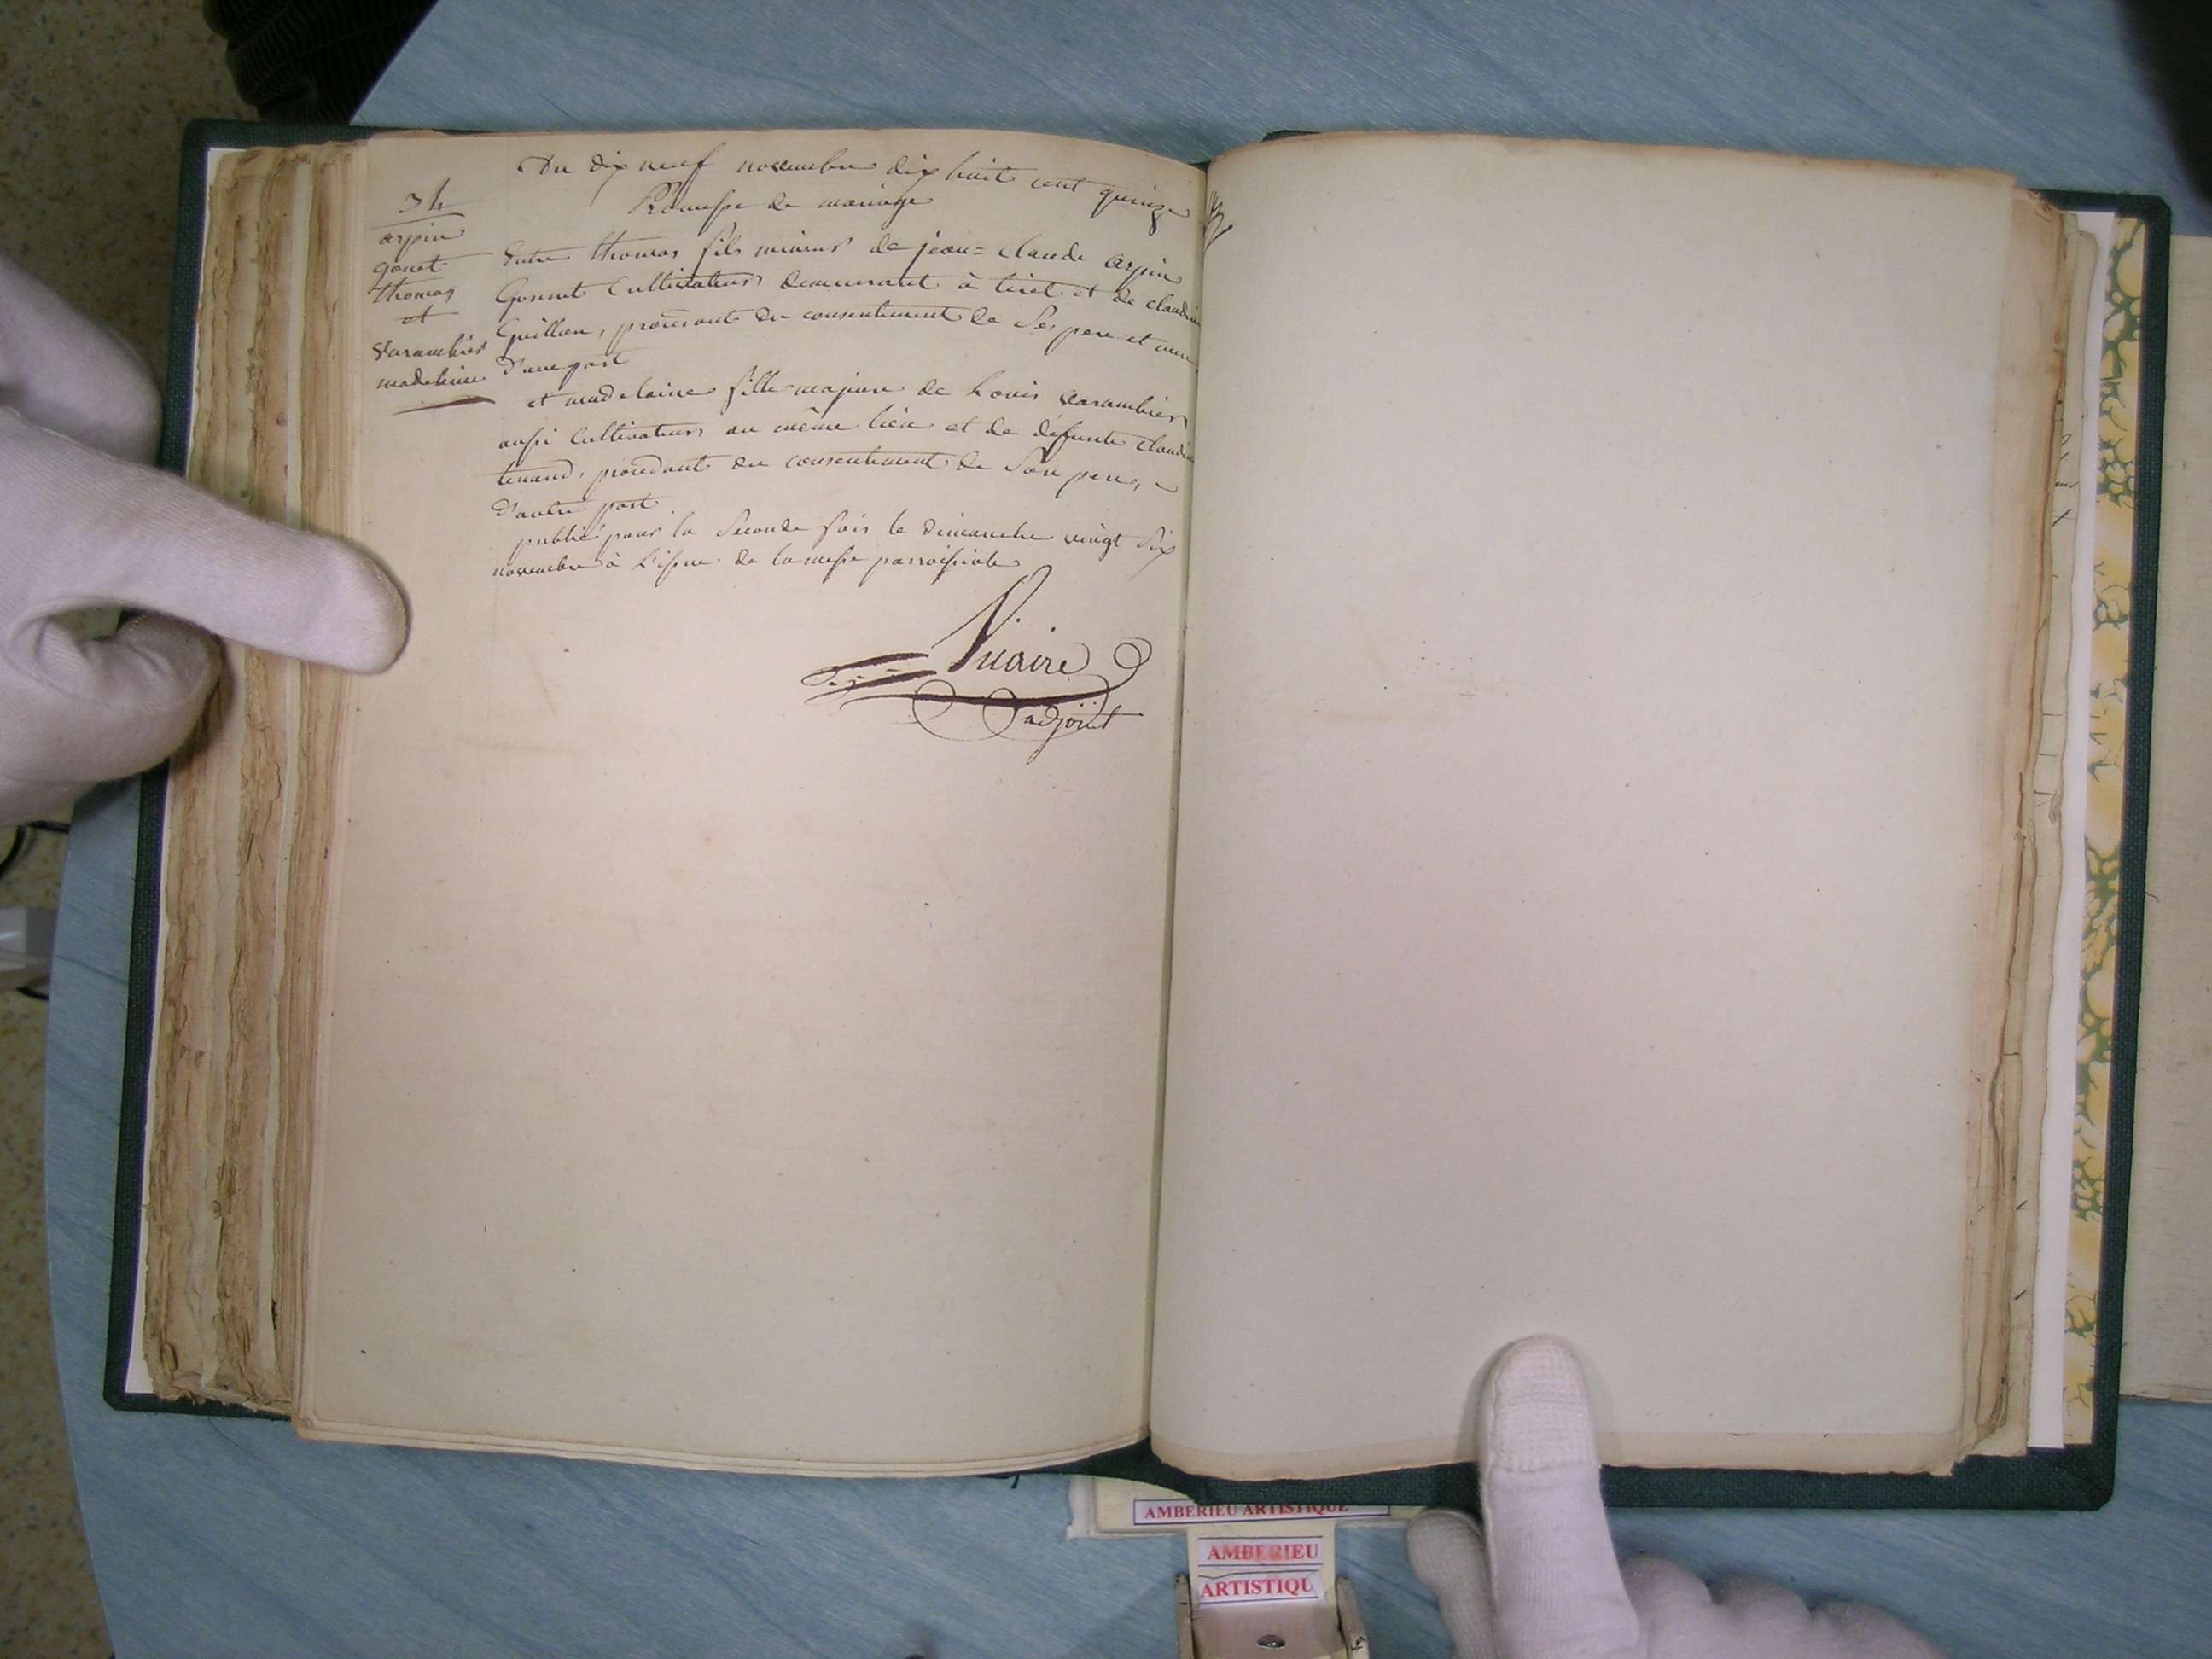 Du dix neuf novembre dix huit cent quinze
Promesse de mariage
34
arpin
gonet
thomas
et
varambier
madeleine
Entre thomas fils mineur de jean=claude arpin
Gonnet Cultivateur demeurant à tiret et de claudine
Guillon, procédant du consentement de Ses pere et mere
d'une part
et madelaine fille majeure de Louis varambier
aussi Cultivateur au même lieu et de défunte claudine
tenand, procédant du consentement de Son pere,
d'autre part
publié pour la Seconde fois le dimanche vingt Six
novembre à L'issue de la messe parroissiale
Vicaire
adjoint
AMBERIEU ARTISTIQUE
AMBERIEU
ARTISTIQU